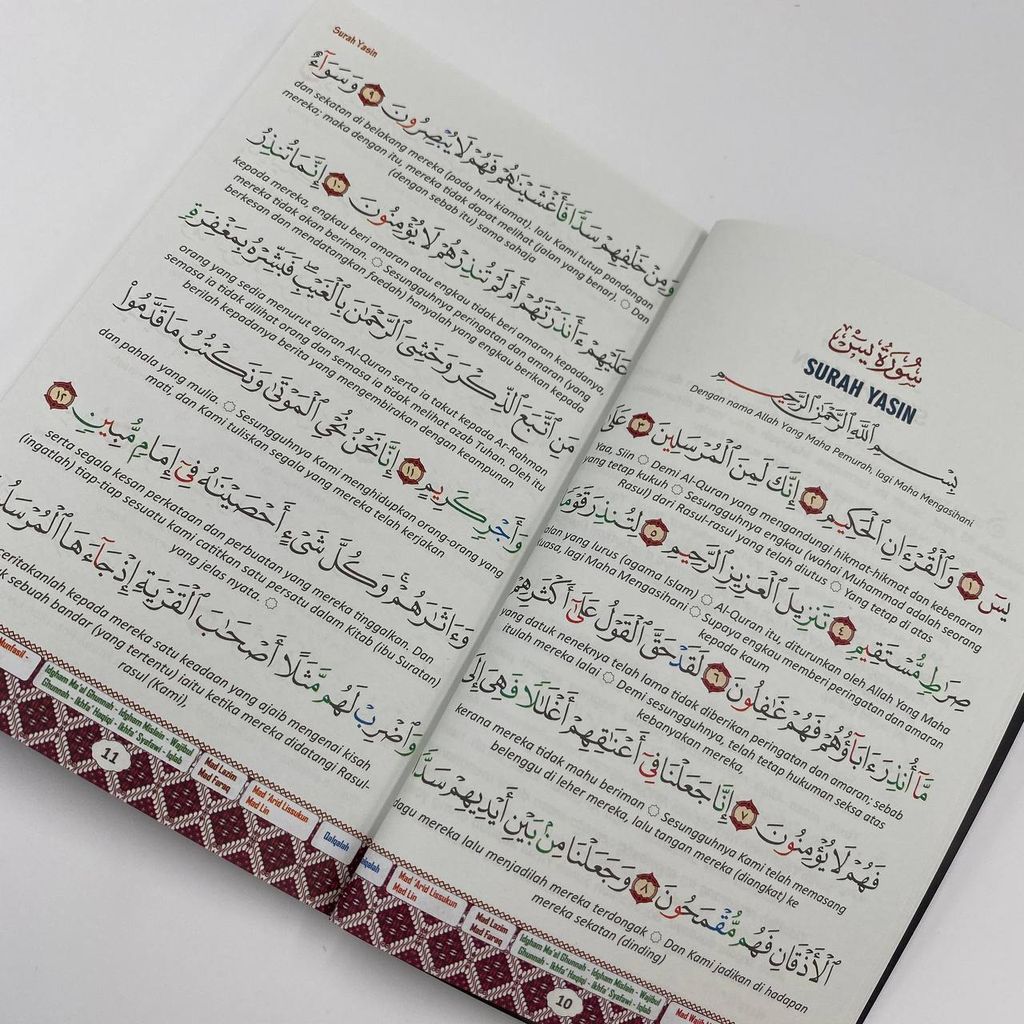 سُورَةُ يسٓ
SURAH YASIN
بِسْمِ ٱللَّهِ ٱلرَّحْمَٰنِ ٱلرَّحِيمِ
Dengan nama Allah Yang Maha Pemurah, lagi Maha Mengasihani
يسٓ ١ وَٱلْقُرْءَانِ ٱلْحَكِيمِ ٢ إِنَّكَ لَمِنَ ٱلْمُرْسَلِينَ ٣ عَلَىٰ
Yaa, Siin ◌ Demi Al-Quran yang mengandungi hikmat-hikmat dan kebenaran
yang tetap kukuh ◌ Sesungguhnya engkau (wahai Muhammad adalah seorang
Rasul) dari Rasul-rasul yang telah diutus ◌ Yang tetap di atas
صِرَٰطٍ مُّسْتَقِيمٍ ٤ تَنزِيلَ ٱلْعَزِيزِ ٱلرَّحِيمِ ٥ لِتُنذِرَ قَوْمًا
jalan yang lurus (agama Islam) ◌ Al-Quran itu, diturunkan oleh Allah Yang Maha
Kuasa, lagi Maha Mengasihani ◌ Supaya engkau memberi peringatan dan amaran
kepada kaum
مَّآ أُنذِرَ ءَابَآؤُهُمْ فَهُمْ غَٰفِلُونَ ٦ لَقَدْ حَقَّ ٱلْقَوْلُ عَلَىٰٓ أَكْثَرِهِمْ
yang datuk neneknya telah lama tidak diberikan peringatan dan amaran; sebab
itulah mereka lalai ◌ Demi sesungguhnya, telah tetap hukuman seksa atas
kebanyakan mereka,
فَهُمْ لَا يُؤْمِنُونَ ٧ إِنَّا جَعَلْنَا فِىٓ أَعْنَٰقِهِمْ أَغْلَٰلًا فَهِىَ إِلَى
kerana mereka tidak mahu beriman ◌ Sesungguhnya Kami telah memasang
belenggu di leher mereka, lalu tangan mereka (diangkat) ke
ٱلْأَذْقَانِ فَهُم مُّقْمَحُونَ ٨ وَجَعَلْنَا مِنۢ بَيْنِ أَيْدِيهِمْ سَدًّا
dagu mereka lalu menjadilah mereka terdongak ◌ Dan Kami jadikan di hadapan
mereka sekatan (dinding)
Mad 'Arid Lissukun
Mad Lin
Mad Lazim
Mad Farq
Idgham Ma'al Ghunnah - Idgham Mislain - Wajibul
Ghunnah - Ikhfa' Haqiqi - Ikhfa' Syafawi - Iqlab
10
Surah Yasin
وَمِنْ خَلْفِهِمْ سَدًّا فَأَغْشَيْنَٰهُمْ فَهُمْ لَا يُبْصِرُونَ ٩ وَسَوَآءٌ
dan sekatan di belakang mereka (pada hari kiamat). lalu Kami tutup pandangan
mereka: maka dengan itu, mereka tidak dapat melihat (jalan yang benar). ◌ Dan
(dengan sebab itu) sama sahaja
عَلَيْهِمْ ءَأَنذَرْتَهُمْ أَمْ لَمْ تُنذِرْهُمْ لَا يُؤْمِنُونَ ١٠ إِنَّمَا تُنذِرُ
kepada mereka, engkau beri amaran atau engkau tidak beri amaran kepadanya
mereka tidak akan beriman. ◌ Sesungguhnya peringatan dan amaran (yang
berkesan dan mendatangkan faedah) hanyalah yang engkau berikan kepada
مَنِ ٱتَّبَعَ ٱلذِّكْرَ وَخَشِىَ ٱلرَّحْمَٰنَ بِٱلْغَيْبِ فَبَشِّرْهُ بِمَغْفِرَةٍ
orang yang sedia menurut ajaran Al-Quran serta ia takut kepada Ar-Rahman
semasa ia tidak dilihat orang dan semasa ia tidak melihat azab Tuhan. Oleh itu
berilah kepadanya berita yang mengembirakan dengan keampunan
وَأَجْرٍ كَرِيمٍ ١١ إِنَّا نَحْنُ نُحْىِ ٱلْمَوْتَىٰ وَنَكْتُبُ مَا قَدَّمُوا۟
dan pahala yang mulia. ◌ Sesungguhnya Kami menghidupkan orang-orang yang
mati, dan Kami tuliskan segala yang mereka telah kerjakan
وَءَاثَٰرَهُمْ ۚ وَكُلَّ شَىْءٍ أَحْصَيْنَٰهُ فِىٓ إِمَامٍ مُّبِينٍ ١٢
serta segala kesan perkataan dan perbuatan yang mereka tinggalkan. Dan
(ingatlah) tiap-tiap sesuatu kami catitkan satu persatu dalam Kitab (ibu Suratan)
yang jelas nyata. ◌
وَٱضْرِبْ لَهُم مَّثَلًا أَصْحَٰبَ ٱلْقَرْيَةِ إِذْ جَآءَهَا ٱلْمُرْسَلُ
ceritakanlah kepada mereka satu keadaan yang ajaib mengenai kisah
k sebuah bandar (yang tertentu) iaitu ketika mereka didatangi Rasul-
rasul (Kami),
Munfasil -
Idgham Ma'al Ghunnah - Idgham Mislain - Wajibul
Ghunnah - Ikhfa' Haqiqi - Ikhfa' Syafawi - Iqlab
Mad Lazim
Mad Farq
Mad 'Arid Lissukun
Mad Lin
Qalqalah
11